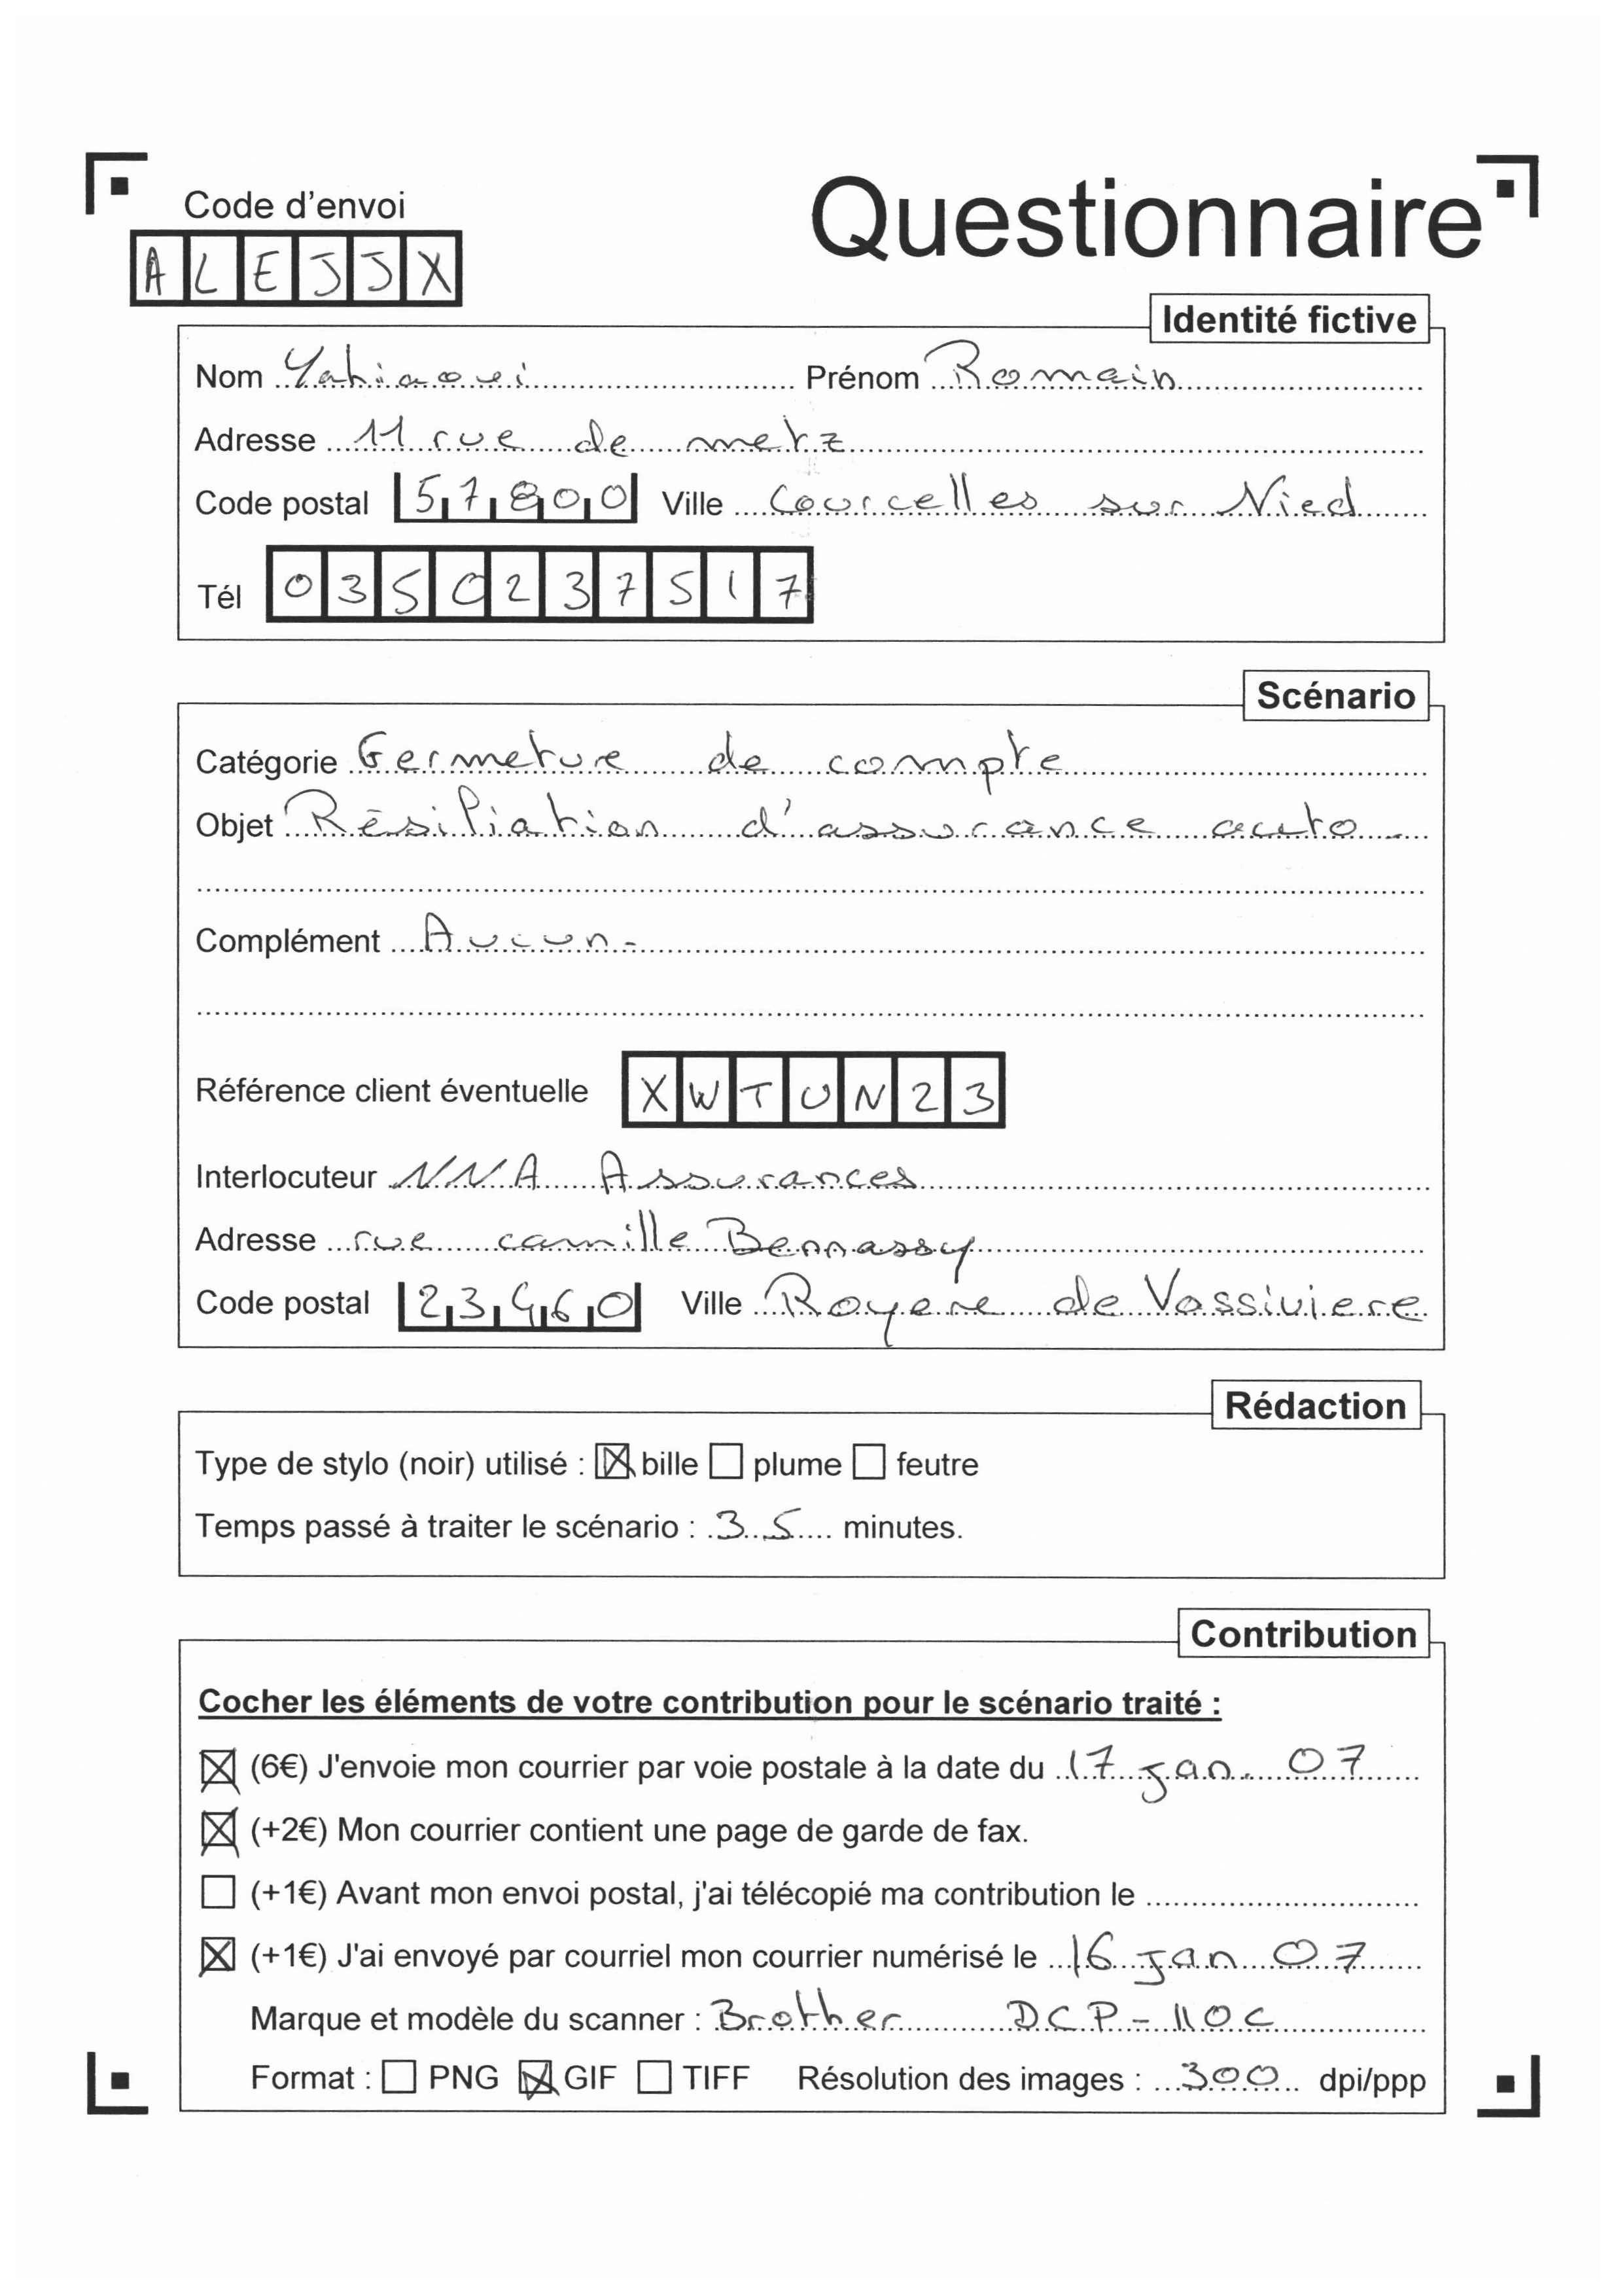 Code d'envoi
Questionnaire
ALEJJX
Identité fictive
Nom Yahiaoui Prénom Romain
Adresse 11 rue de metz
Code postal 57800 Ville Courcelles sur Nied
Tél 0350237517
Scénario
Catégorie Fermeture de compte
Objet Résiliation d'assurance auto
Complément Aucun-
Référence client éventuelle XWTUN23
Interlocuteur NNA Assurances
Adresse rue camille Bennassy
Code postal 23460 Ville Royere de Vassiviere
Rédaction
Type de stylo (noir) utilisé : ☒ bille ☐ plume ☐ feutre
Temps passé à traiter le scénario : 35 minutes.
Contribution
Cocher les éléments de votre contribution pour le scénario traité :
☒ (6€) J'envoie mon courrier par voie postale à la date du 17 jan. 07
☒ (+2€) Mon courrier contient une page de garde de fax.
☐ (+1€) Avant mon envoi postal, j'ai télécopié ma contribution le
☒ (+1€) J'ai envoyé par courriel mon courrier numérisé le 16 jan 07
Marque et modèle du scanner : Brother DCP-110C
Format : ☐ PNG ☒ GIF ☐ TIFF Résolution des images : 300 dpi/ppp